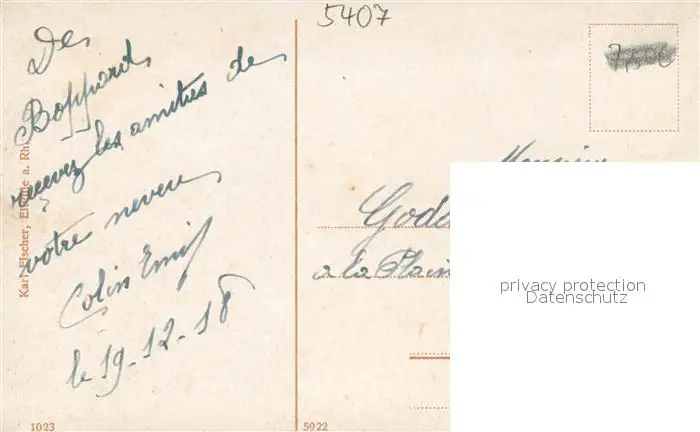 5407
7,50€
De
Boppard
recevez les amitiés de
votre neveu
Colin Emil
le 19-12-18
Karl Fischer, Eltville a. Rh.
Monsieur
God
a la Plain
privacy protection
Datenschutz
1023
5922